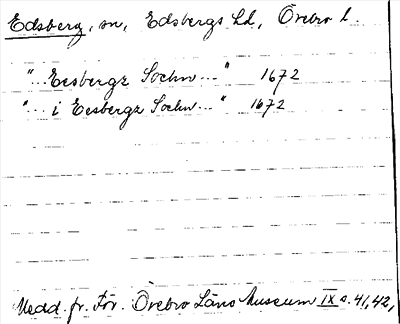 Edsberg, sn, Edsbergs hd, Örebro l.
"... Eesbergz Sochn..." 1672
"... i Eesbergz Sochn..." 1672
Medd. fr. För. Örebro Läns Museum IX s. 41, 42,